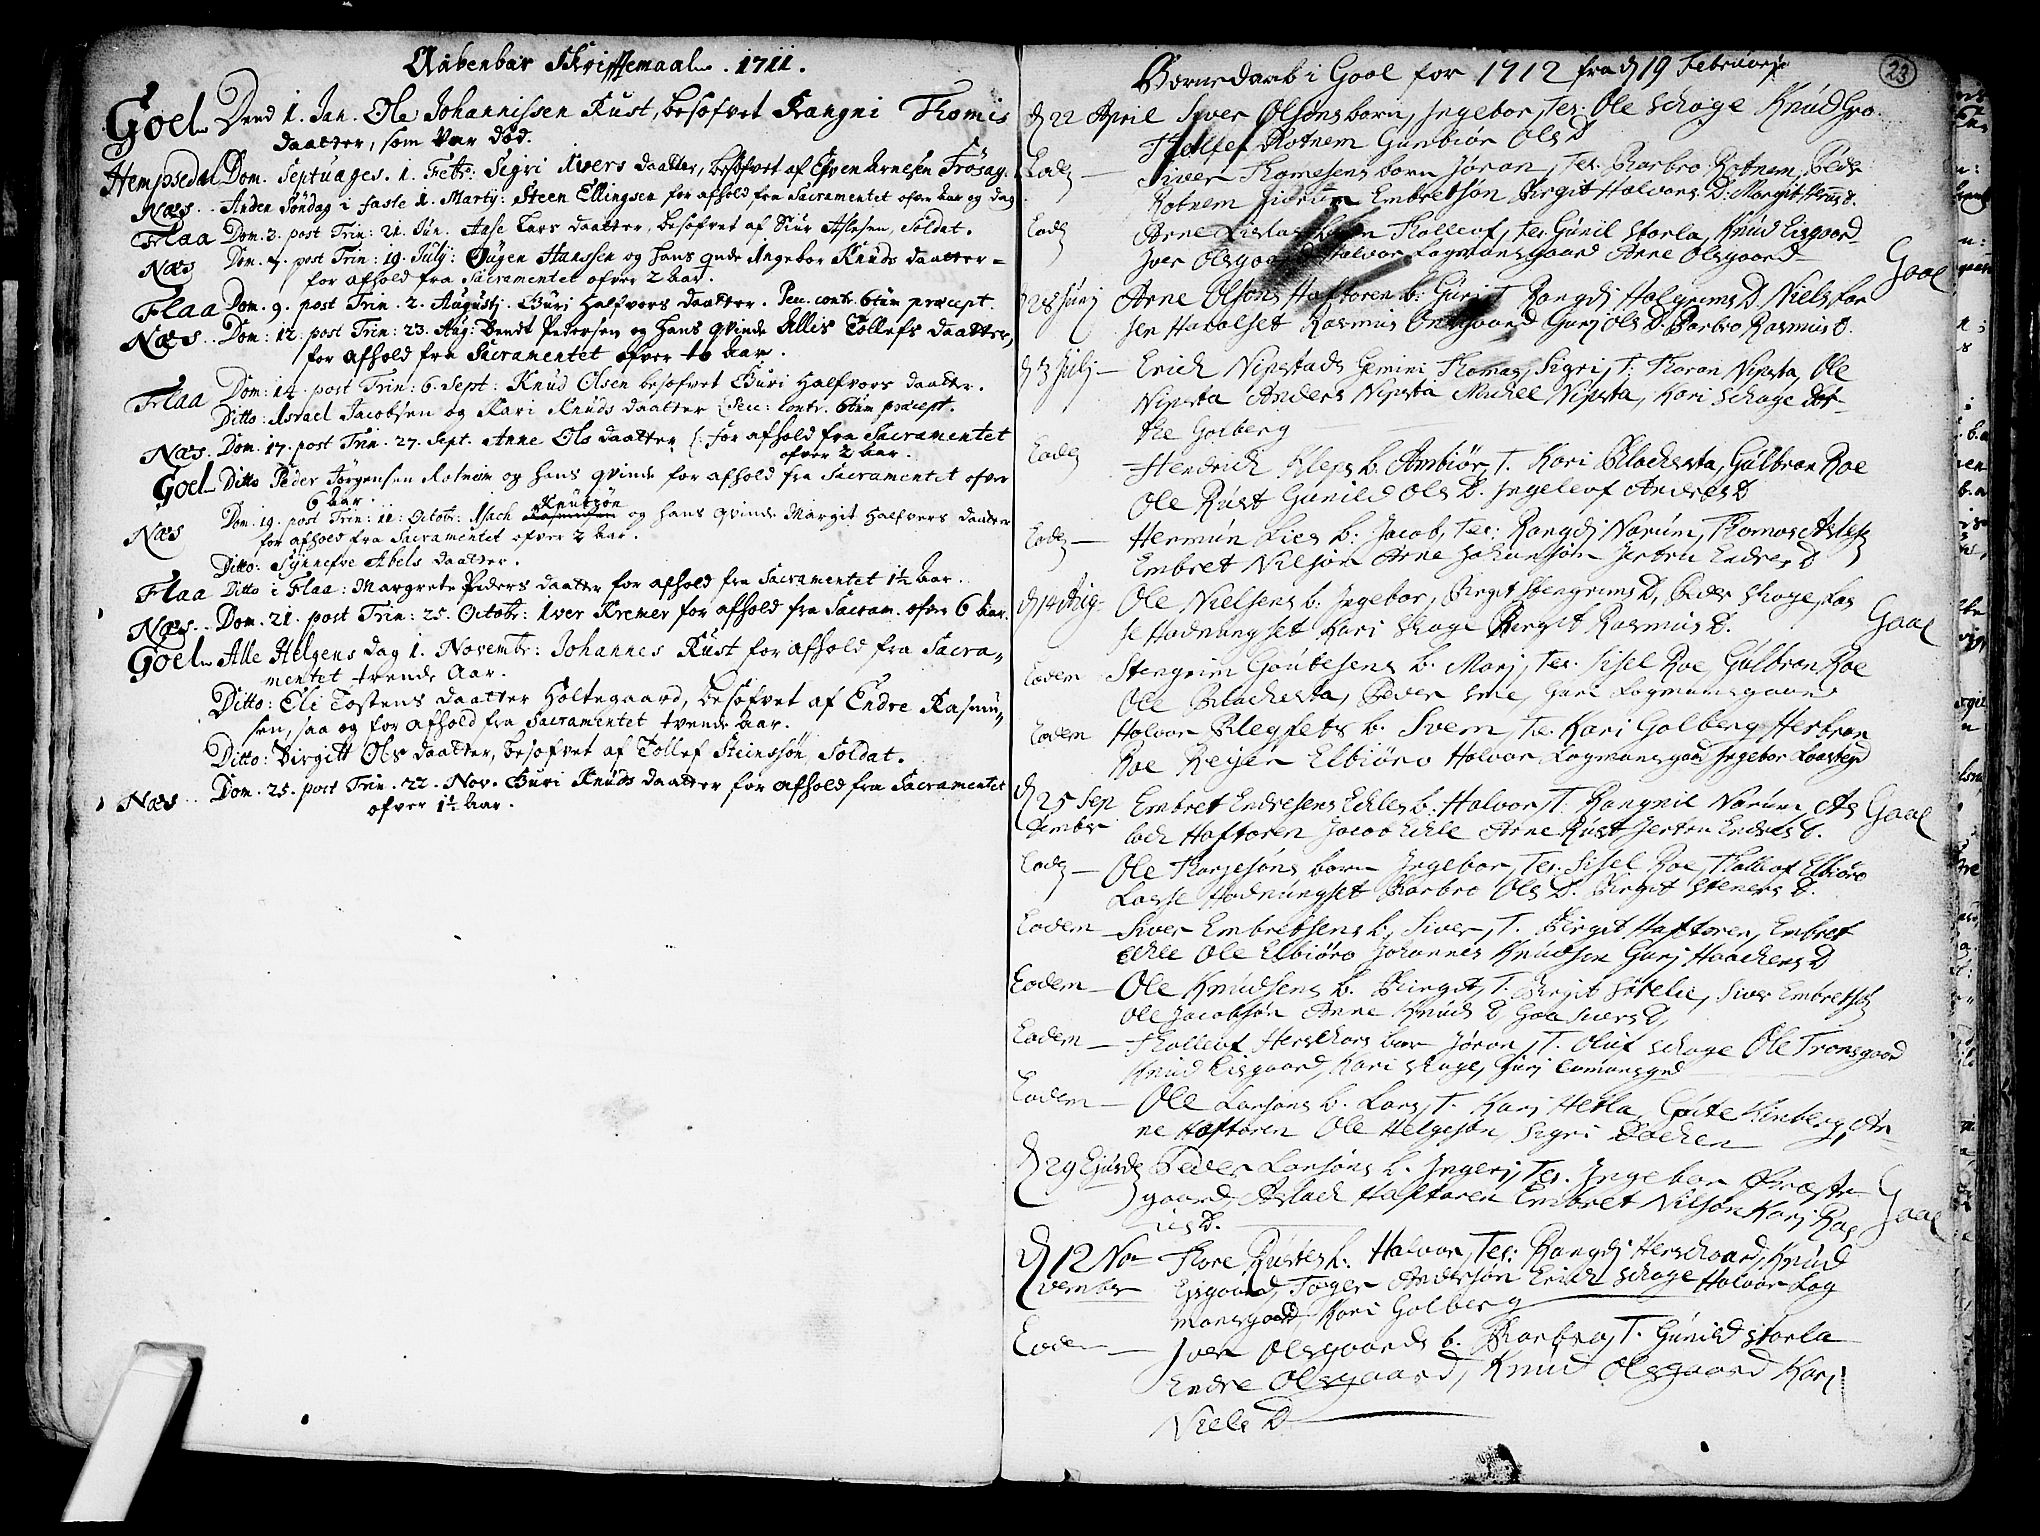 Aabenbar Skrifftemaal. 1711.
Goel Dend 1. Jan. Ole Johannissen Rust, besofvet Rangni Thomis
daatter, som var død.
Hempsedal Dom. Septuages. 1. Febr: Sigri Ivers daatter, besofvet af Efven Arnesen Trøsag.
Næs.. Anden Søndag i faste 1. Martij: Steen Ellingsen for afhold fra Sacramentet ofver aar og dag
Flaa Dom. 3. post Trin: 21. Jun. Aase Lars daatter, besofvet af Siur Aslesen, Soldat.
Næs Dom. 7. post Trin: 19. Julij: Øugen Hanssen og hans qnde Angebor Knuds daatter
for afhold fra Sacramentet ofver 2 aar.
Flaa Dom. 9. post Trin. 2. Augustj. Guri Halfvors daatter. Pec. contr. 6tum præcept.
Næs.. Dom: 12. post Trin: 23. Aug: Bendt Petersen og Hans qvinde Allis Tollefs daatter,
for afhold fra Sacramentet ofver 10 aar.
Flaa Dom: 14. post Trin: 6. Sept: Knud Olsen besofvet Guri Halfvors daatter.
Ditto: Asrael Jacobsen og Kari Knuds daatter (Pecc: contr. 6tum præcept.
Næs. Dom. 17. post Trin. 27. Sept. Anne Ols daatter (: for afhold fra Sacramentet
ofver 2 aar.
Goel Ditto Peder Jørgensen Rotneim og hans qvinde for afhold fra Sacramentet ofver
6 aar.
Knutzøn
Næs Dom. 19. post Trin: 11: Octobr: Isach og hans qvinde Margit Halfvors daatter
for afhold fra Sacramentet ofver 2 aar.
Ditto: Synnefve Abels daatter.
Flaa Ditto i Flaa: Margrete Peders daatter for afhold fra Sacramentet 1½ aar.
Næs.. Dom. 21. post Trin: 25. Octobr: Iver Kremer for afhold fra Sacram. ofver 6 aar.
Goel Alle Helgens dag 1. Novembr: Johannes Rust for afhold fra Sacra„
mentet trende Aar.
Ditto: Eli Tostens daatter Holtegaard, besofvet af Endre Rasmu„
sen, saa og for afhold fra Sacramentet tvende aar.
Ditto: Birgitt Ols daatter, besofvet af Tollef Steinssøn, Soldat.
Næs.. Dom. 25. post Trin. 22. Nov. Guri Knuds daatter for afhold fra Sacramentet
ofver 1½ aar.
Børnedaab i Gaal for 1712 fra d 19 Februarij
23
d 22 April Siver Olsøns barn, Ingebor, Tes: Ole Schage Knud Gro
Rotnem Gunbiør Ols D
Eod Siver Thomesens barn Jøran, Tes. Barbro Rotnem, Peder
Rotnem Embretsøn Birgit Halvors D. Margit
Eod Arne Tholleof, Tes Gunil Storla, Knud Eisgaard
Iver Olsgaard Halvor Lagmansgaard Arne Olsgaard Gaal
d 28 Junj Arne Olsøns Haftoren b: Guri T. Rangdj Halgrims D. Niels Lar
sen Haralset Rasmus Gurj Ols D. Barbro Rasmus D.
d 3 Julj Erich Nipstads Gemini Thomas, Sigri, T: Thoran Nipsta, Ole
Nipsta Anders Nipsta Michel Nipsta, Kari Schage Dor
the Golberg
Eod Hendrich Kleps b. Ambiør, T. Kari Blachesta, Gulbran Roe
Ole Rust Gunild Ols D. Ingeleof Anders D
Eod Hermun Lies b: Jacob, Tes: Rangdj Narum, Thomas
Embret Nilsøn Arne Johansøn Endres D
d 14 Aug. Ole Nielsens b: Ingebor, Birgit Stengrims D, Peder Schage, Las
se Hadnungset Kari Schage Birgit Rasmus D. Gaal
Eodem Stengrim Goutesens b. Marj, Tes. Sisel Roe, Gulbran Roe
Ole Blachesta, Peder Guri Lagmansgaard
Eodem Halvor b. Svem, Te. Kari Golberg Herbran
Roe Reyer Elbiøro Halvor Lagmansgaard Ingebor
d 25 Sep
tember Embret Endresens Echles b: Halvor, T. Rangnil Narum As
lach Haftoren Jacob Echle Arne Rust Endres D. Gaal
Eod Ole barn Ingebor, Tes. Sisel Roe, Tholleof Elbiøro
Lasse Hadnungset Barbro Ols D. Birgit Steners D.
Eodem Siver Embretsens b, Siver, T. Birgit Haftoren, Embret
Echle Ole Elbiøro Johannes Knudsen Gurj Haachens D
Eodem Ole Knudsens b. Birget, T. Birgit Siver Embretsøn
Ole Jacobsøn Anne Knuds D Goa Suers D
Eodem Tholleof barn Jøran, T. Oluf Schage Ole Tronsgaard
Knud Eisgaard, Kari Schage, Gurj
Eodem Ole Larsøns b. Lars, T. Karj Hesla, Goute Kinberg, Ar
ne Haftoren Ole Helgesøn, Sigri Bachen
d 29 Ejusd Peder Larsøns b. Ingerj, Tes. Ingebor Præste
gaard, Aslach Haftoren Embret Nilsøn Karj Ras
mus D. Gaal
d 12 No
vember Thore Rustes b. Halvor, Tes: Rangdj Knud
Eisgaard, Toger Andersøn Erich Schage Halvor Lag
mansgaard, Kari Golberg
Eodem Iver Olsgaards b. Barbro, T. Gunild Storla
Endre Olsgaard, Knud Olsgaard Karj
Niels D